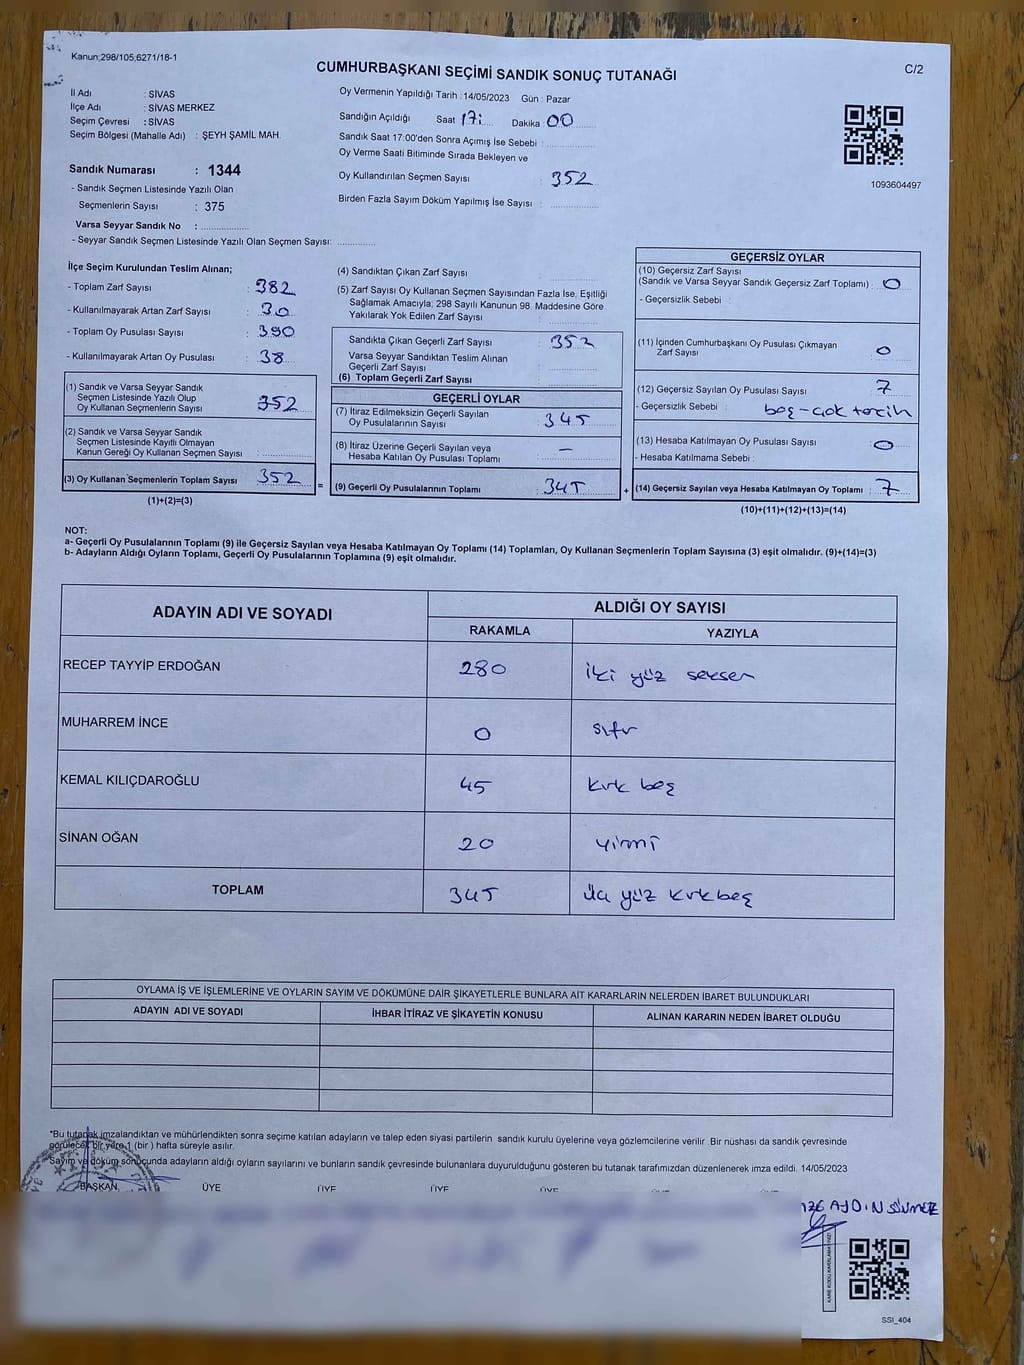 Kanun;298/105,6271/18-1
C/2
CUMHURBAŞKANI SEÇİMİ SANDIK SONUÇ TUTANAĞI
İl Adı : SİVAS
İlçe Adı : SİVAS MERKEZ
Seçim Çevresi : SİVAS
Seçim Bölgesi (Mahalle Adı) : ŞEYH ŞAMİL MAH.
Sandık Numarası : 1344
- Sandık Seçmen Listesinde Yazılı Olan
Seçmenlerin Sayısı : 375
Varsa Seyyar Sandık No :
- Seyyar Sandık Seçmen Listesinde Yazılı Olan Seçmen Sayısı:
Oy Vermenin Yapıldığı Tarih : 14/05/2023 Gün : Pazar
Sandığın Açıldığı Saat 17: Dakika : 00
Sandık Saat 17:00'den Sonra Açımış İse Sebebi :
Oy Verme Saati Bitiminde Sırada Bekleyen ve
Oy Kullandırılan Seçmen Sayısı : 352
Birden Fazla Sayım Döküm Yapılmış İse Sayısı :
1093604497
İlçe Seçim Kurulundan Teslim Alınan;
- Toplam Zarf Sayısı : 382
- Kullanılmayarak Artan Zarf Sayısı : 30
- Toplam Oy Pusulası Sayısı : 390
- Kullanılmayarak Artan Oy Pusulası : 38
(1) Sandık ve Varsa Seyyar Sandık
Seçmen Listesinde Yazılı Olup
Oy Kullanan Seçmenlerin Sayısı : 352
(2) Sandık ve Varsa Seyyar Sandık
Seçmen Listesinde Kayıtlı Olmayan
Kanun Gereği Oy Kullanan Seçmen Sayısı :
(3) Oy Kullanan Seçmenlerin Toplam Sayısı : 352
(1)+(2)=(3)
(4) Sandıktan Çıkan Zarf Sayısı :
(5) Zarf Sayısı Oy Kullanan Seçmen Sayısından Fazla İse, Eşitliği
Sağlamak Amacıyla; 298 Sayılı Kanunun 98. Maddesine Göre
Yakılarak Yok Edilen Zarf Sayısı :
Sandıkta Çıkan Geçerli Zarf Sayısı : 352
Varsa Seyyar Sandıktan Teslim Alınan
Geçerli Zarf Sayısı :
(6) Toplam Geçerli Zarf Sayısı :
GEÇERLİ OYLAR
(7) İtiraz Edilmeksizin Geçerli Sayılan
Oy Pusulalarının Sayısı : 345
(8) İtiraz Üzerine Geçerli Sayılan veya
Hesaba Katılan Oy Pusulası Toplamı : –
= (9) Geçerli Oy Pusulalarının Toplamı : 345 +
GEÇERSİZ OYLAR
(10) Geçersiz Zarf Sayısı
(Sandık ve Varsa Seyyar Sandık Geçersiz Zarf Toplamı) : 0
- Geçersizlik Sebebi :
(11) İçinden Cumhurbaşkanı Oy Pusulası Çıkmayan
Zarf Sayısı : 0
(12) Geçersiz Sayılan Oy Pusulası Sayısı : 7
- Geçersizlik Sebebi : boş-çok tercih
(13) Hesaba Katılmayan Oy Pusulası Sayısı : 0
- Hesaba Katılmama Sebebi :
(14) Geçersiz Sayılan veya Hesaba Katılmayan Oy Toplamı : 7
(10)+(11)+(12)+(13)=(14)
NOT:
a- Geçerli Oy Pusulalarının Toplamı (9) ile Geçersiz Sayılan veya Hesaba Katılmayan Oy Toplamı (14) Toplamları, Oy Kullanan Seçmenlerin Toplam Sayısına (3) eşit olmalıdır. (9)+(14)=(3)
b- Adayların Aldığı Oyların Toplamı, Geçerli Oy Pusulalarının Toplamına (9) eşit olmalıdır.
ADAYIN ADI VE SOYADI ALDIĞI OY SAYISI
RAKAMLA YAZIYLA
RECEP TAYYİP ERDOĞAN 280 iki yüz seksen
MUHARREM İNCE 0 sıfır
KEMAL KILIÇDAROĞLU 45 kırk beş
SİNAN OĞAN 20 yirmi
TOPLAM 345 üç yüz kırkbeş
OYLAMA İŞ VE İŞLEMLERİNE VE OYLARIN SAYIM VE DÖKÜMÜNE DAİR ŞİKAYETLERLE BUNLARA AİT KARARLARIN NELERDEN İBARET BULUNDUKLARI
ADAYIN ADI VE SOYADI İHBAR İTİRAZ VE ŞİKAYETİN KONUSU ALINAN KARARIN NEDEN İBARET OLDUĞU
*Bu tutanak imzalandıktan ve mühürlendikten sonra seçime katılan adayların ve talep eden siyasi partilerin sandık kurulu üyelerine veya gözlemcilerine verilir. Bir nüshası da sandık çevresinde
görülecek bir yere 1 (bir) hafta süreyle asılır.
Sayım ve döküm sonucunda adayların aldığı oyların sayılarını ve bunların sandık çevresinde bulunanlara duyurulduğunu gösteren bu tutanak tarafımızdan düzenlenerek imza edildi. 14/05/2023
BAŞKAN ÜYE ÜYE ÜYE ÜYE ÜYE ÜYE
AYDIN
SSI_404